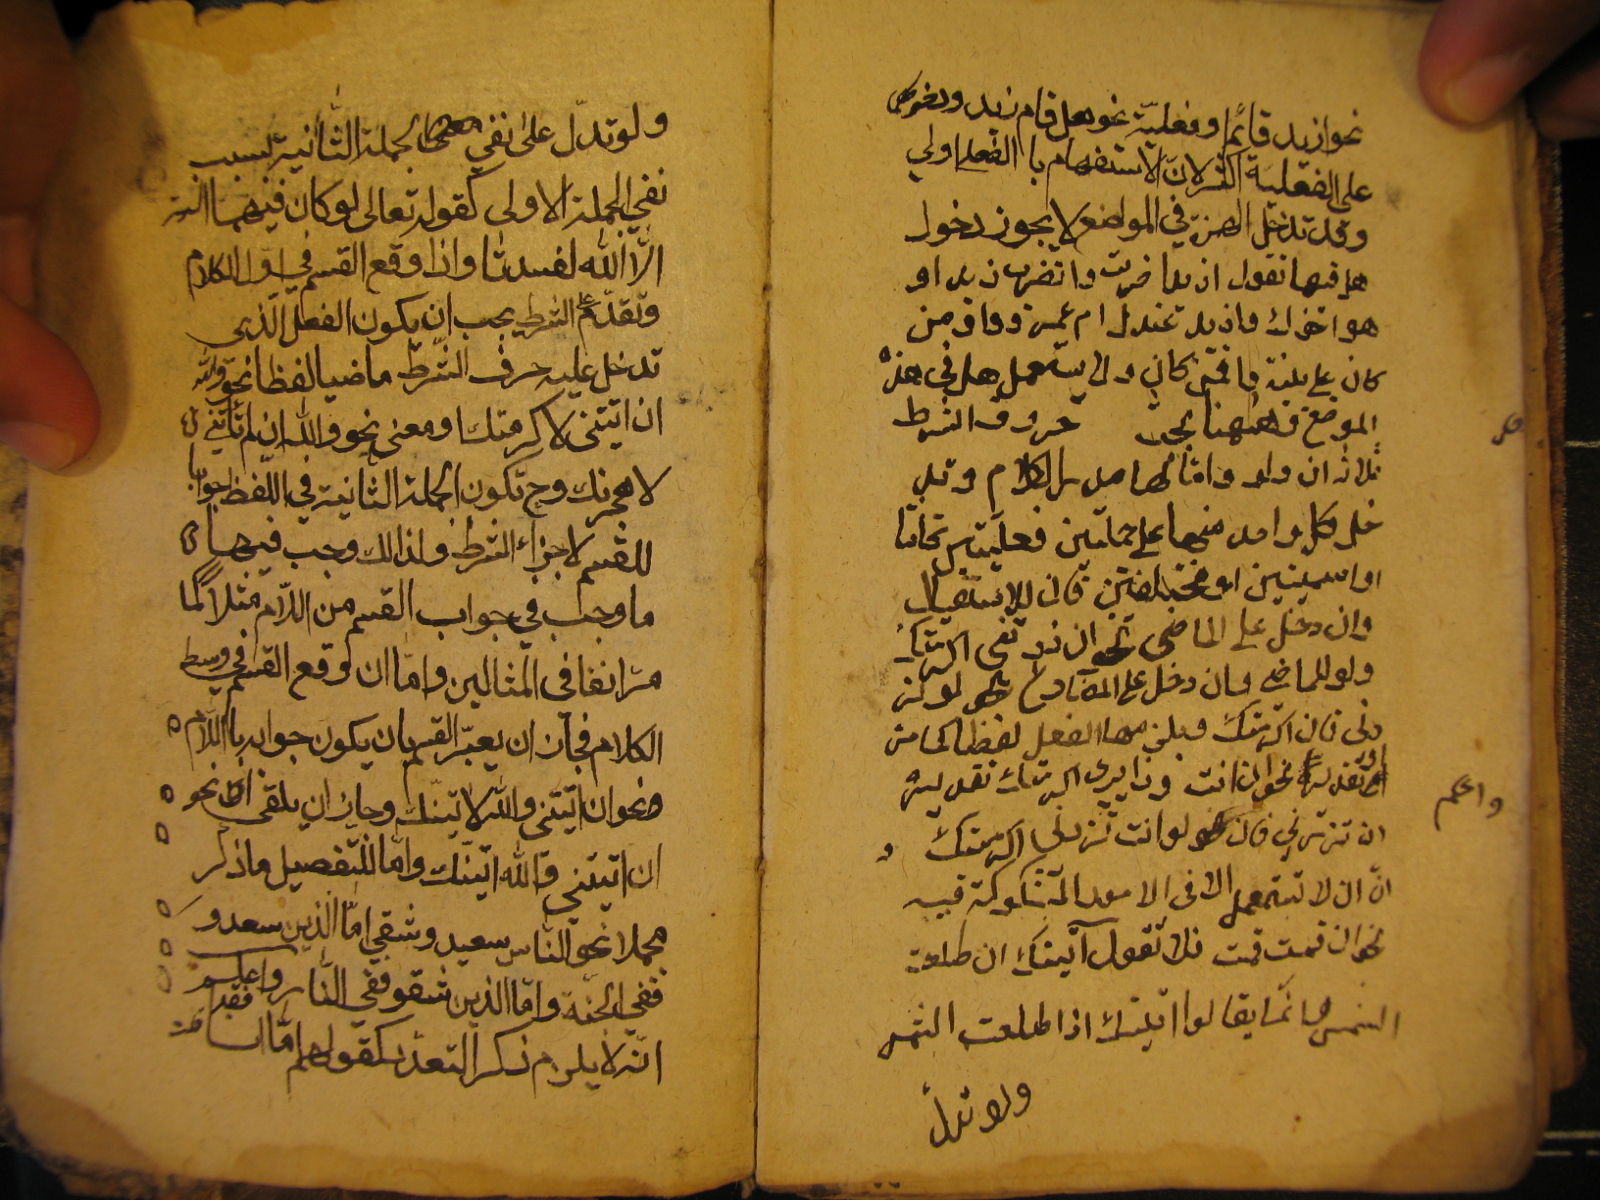 نحو ازيد قائم او فعليّة نحو هل قام زيد ودخولها
على الفعلية اكثر لانّ الاستفهام باالفعل اولى
وقد تدخل الهمزة في المواضع لا يجوز دخول
هل فيها نقول ازيدا ضربت واتضرب زيدا و
هو اخوك وازيد عندك ام عمرو واو من
كان على بينة وافمن كان ولا يستعمل هل في هذه
المواضع وههنا بحث حروف الشرط
ثلاثة ان ولو واما لها صدر الكلام وتد
خل كل واحد منها على جملتين فعليتين كانتا
او اسميتين او مختلفتين فان للاستقبال
وان دخل على الماضي نحو ان زرتني اكرمتك
ولو للماضي وان دخل على المضارع نحو لو تز
ورني اكرمتك ويلزمهما الفعل لفظا كما مر
او تقديرا نحو ان انت زايري اكرمتك تقديره
ان تزرني نحو لو انت تزورني اكرمتك و
واعلم
انّ ان لا تستعمل الا في الامور المشكوكة فيه
نحو ان قمت قمت فلا تقول آتيتك ان طلعت
الشمس وانما يقال اتيتك اذا طلعت الشمس
ولو تدلّ
ولو تدلّ على نفي الجملة الثّانية بسبب
نفي الجملة الاولى كقوله تعالى لو كان فيهما آلهة
الاّ الله لفسدتا واذا وقع القسم في اول الكلام
وتقدّم على الشرط يجب ان يكون الفعل الّذي
تدخل عليه حرف الشّرط ماضيا لفظا نحو والله
ان اتيتني لاكرمتك او معنى نحو والله ان لم تأتني
لاهجرنك وح تكون الجملة الثانية في اللفظ جوابا
للقسم لا جزاء الشرط ولذالك وجب فيها
ما وجب في جواب القسم من اللّام مثلا كما
مرّ انفا في المثالين وامّا ان وقع القسم في وسط
الكلام فجاز ان يعتبر القسم بان يكون جوابه باللّام
نحو ان اتيتني والله لاتينّك وجاز ان يلغى نحو
ان اتيتني والله اتيتك وامّا للتفصيل ما ذكر
مجملا نحو النّاس سعيد وشقي امّا الّذين سعدو
ففي الجنّة وامّا الذين شقو ففي النّار واعلم
انّه لا يلزم ذكر التعدّد كقولهم امّا انا فقد